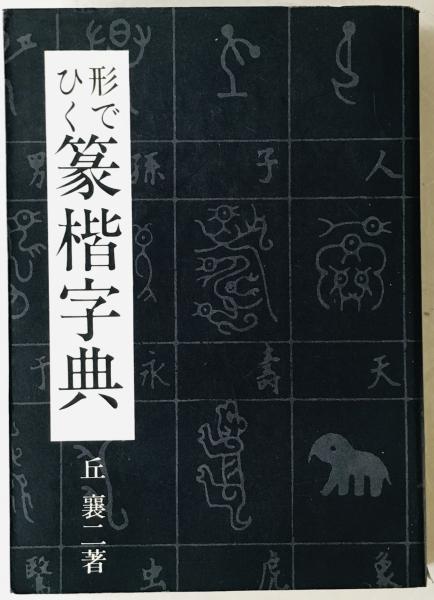 形でひく
篆楷字典
丘襄二著
人
子
孫
男
天
壽
永
于
象
虎
虫